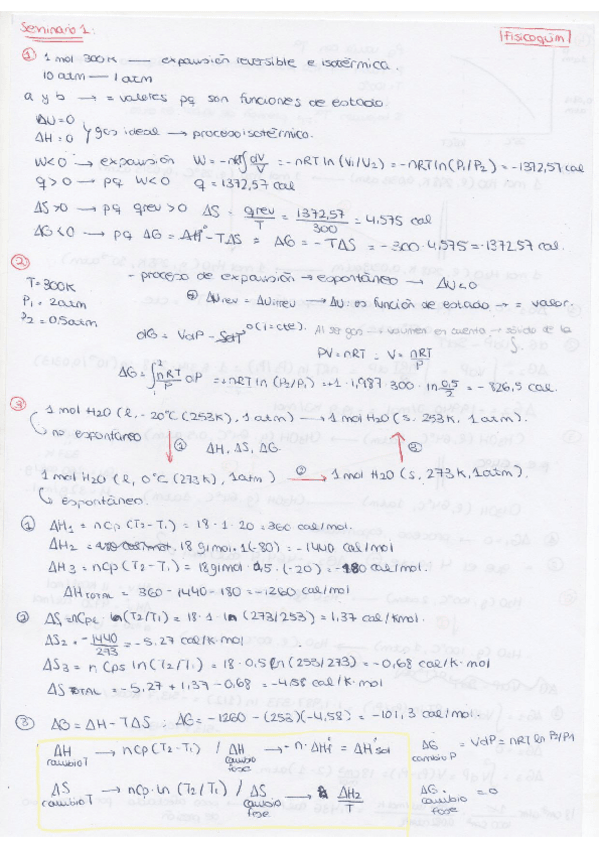 Seminario 1:
Fisicoquím
① 1 mol 300K — expansión reversible e isotérmica.
10 atm — 1 atm
a y b → = valores pq son funciones de estado
ΔU=0
ΔH=0 } gas ideal → proceso isotérmico.
W<0 → expansión W = -nRT∫dV/V = -nRT ln(V1/V2) = -nRT ln(P1/P2) = -1372,57 cal
q>0 → pq W<0 q = 1372,57 cal
ΔS>0 → pq qrev>0 ΔS = qrev/T = 1372,57/300 = 4,575 cal
ΔG<0 → pq ΔG = ΔH° - TΔS = ΔG = -TΔS = -300·4,575 = -1372,57 cal.
②
T=300K
P1 = 2atm
P2 = 0,5atm
- proceso de expansión → espontáneo → ΔU<0
ΔUrev = ΔUirrev → ΔU es función de estado → = valor.
dG = VdP - SdT 0 (T=cte). Al ser gas → volumen en cuenta → sale de la ∫.
PV = nRT = V = nRT/P
ΔG = ∫₁² nRT/P dP = +nRT ln(P2/P1) = +1·1,987·300·ln 0,5/2 = -826,5 cal.
③ 1 mol H2O (l, -20°C (253K), 1 atm) → 1 mol H2O (s, 253K, 1 atm).
no espontáneo
① ΔH, ΔS, ΔG. ③
1 mol H2O (l, 0°C (273K), 1atm) ② → 1 mol H2O (s, 273K, 1atm).
espontáneo.
① ΔH1 = nCp (T2-T1) = 18·1·20 = 360 cal/mol.
ΔH2 = 18 g/mol·1(-80) = -1440 cal/mol
ΔH3 = nCp (T2-T1) = 18g/mol 0,5·(-20) = -180 cal/mol.
ΔH TOTAL = 360-1440-180 = -1260 cal/mol
② ΔS1=nCpl ln(T2/T1) = 18·1·ln (273/253) = 1,37 cal/kmol.
ΔS2 = -1440/273 = -5,27 cal/K·mol
ΔS3 = n Cps ln (T2/T1) = 18·0,5 ln (253/273) = -0,68 cal/K·mol
ΔS TOTAL = -5,27+1,37-0,68 = -4,58 cal/K·mol
③ ΔG = ΔH - TΔS ; ΔG = -1260 - (253)(-4,58) = -101,3 cal/mol.
ΔH cambio T → nCp (T2-T1) / ΔH cambio fase → -n·ΔHf° = ΔH°sol
ΔG cambio P = VdP = nRT ln P2/P1
ΔS cambio T → nCp·ln (T2/T1) / ΔS cambio fase → ΔH2/T
ΔG cambio fase = 0